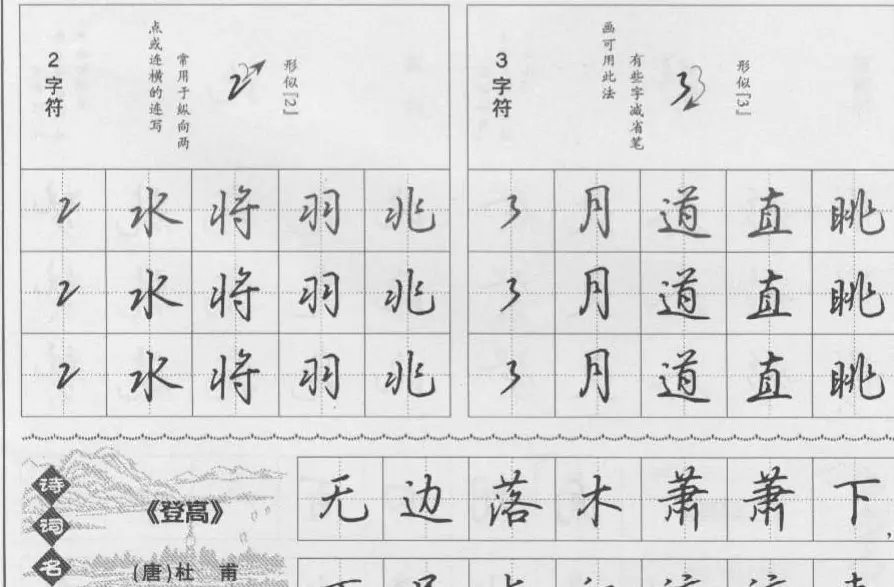 2字符
形似『2』
常用于纵向两
点或连横的连写
2 水 将 羽 兆
2 水 将 羽 兆
2 水 将 羽 兆
3字符
形似『3』
有些字减省笔
画可用此法
3 月 道 直 眺
3 月 道 直 眺
3 月 道 直 眺
诗词名
《登高》
(唐)杜 甫
无边落木萧萧下,